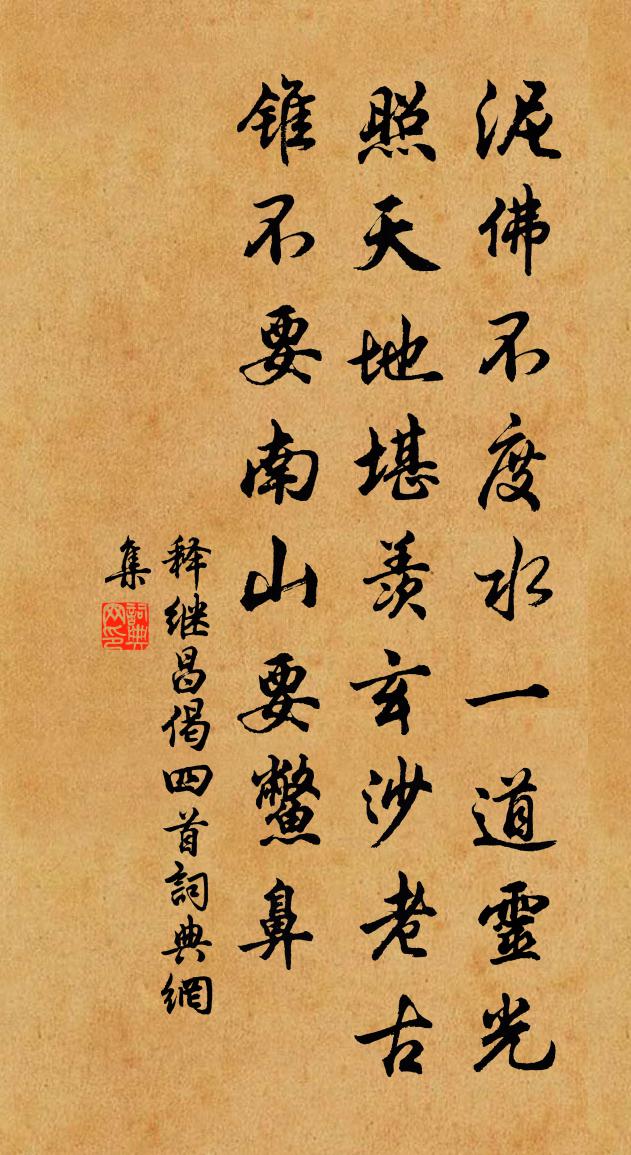 泥佛不度水一道靈光
照天地堪羨玄沙老古
錐不要南山要鱉鼻
释继昌偈四首詞典網
集
詞典
网印